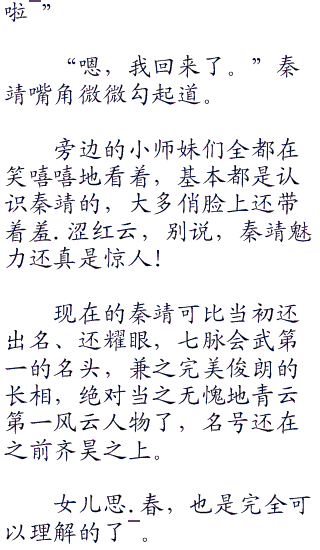 啦¯”
“嗯，我回来了。”秦
靖嘴角微微勾起道。
旁边的小师妹们全都在
笑嘻嘻地看着，基本都是认
识秦靖的，大多俏脸上还带
着羞.涩红云，别说，秦靖魅
力还真是惊人！
现在的秦靖可比当初还
出名、还耀眼，七脉会武第
一的名头，兼之完美俊朗的
长相，绝对当之无愧地青云
第一风云人物了，名号还在
之前齐昊之上。
女儿思.春，也是完全可
以理解的了¯。